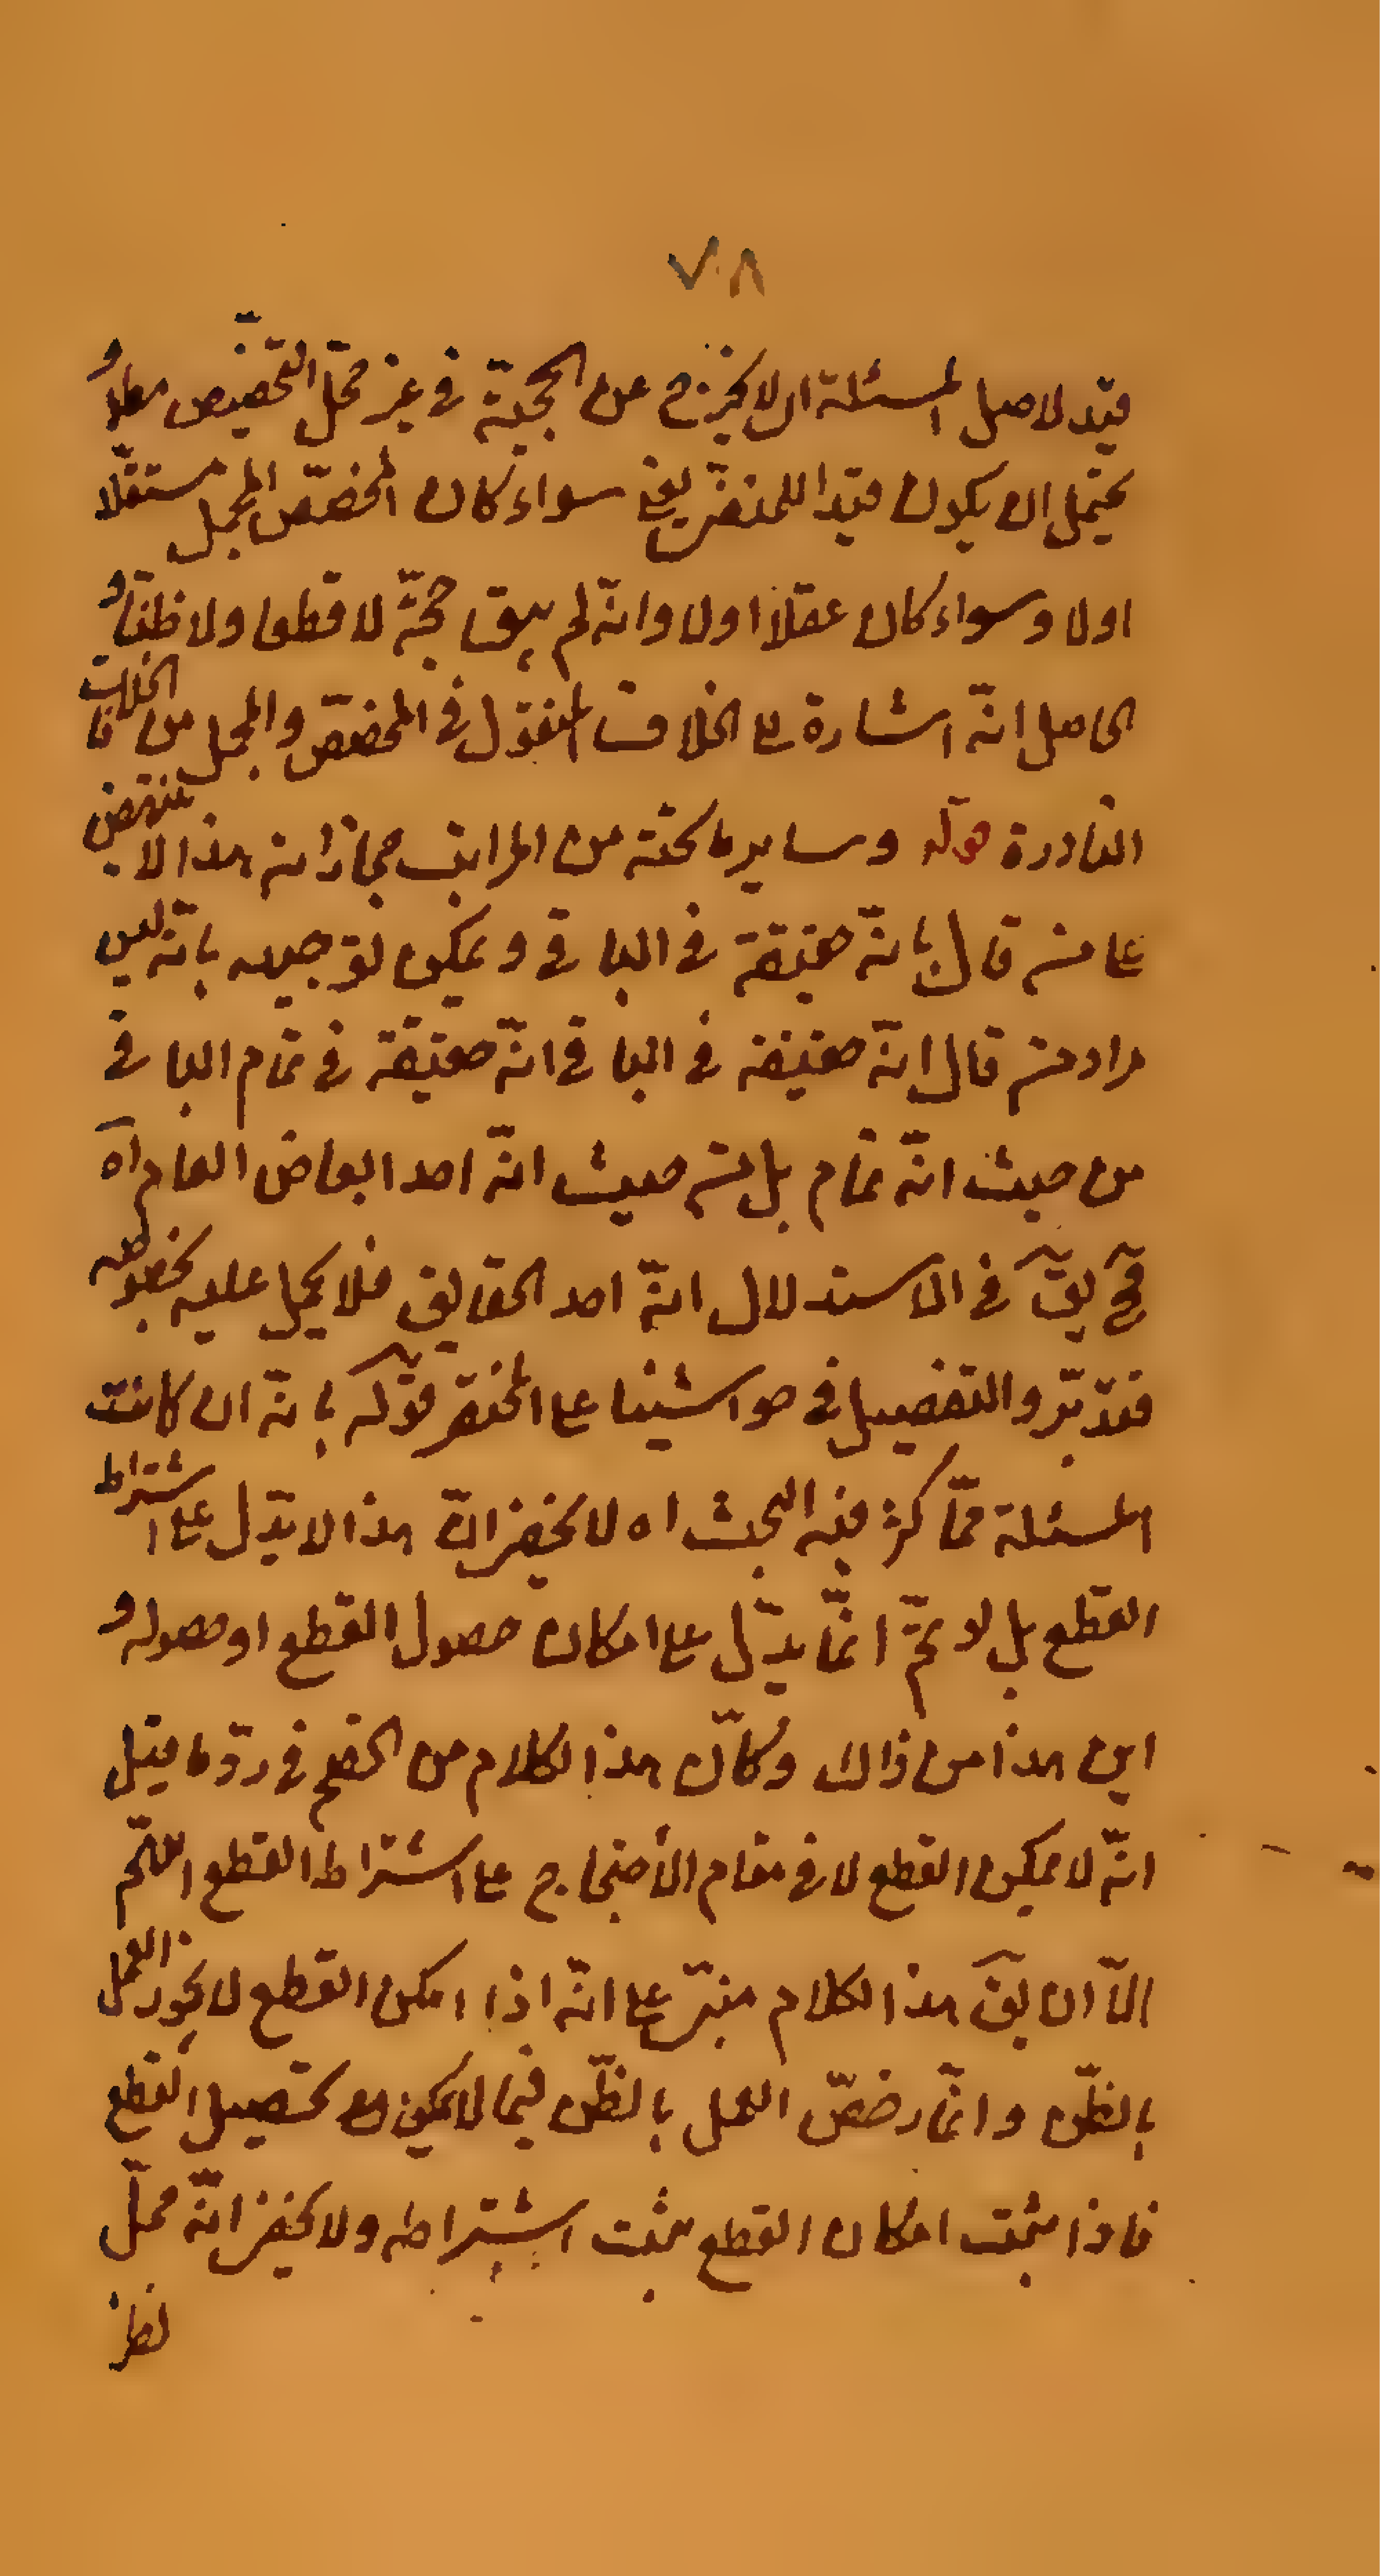 ٧٠٨
قيد لاصل المسئلة ان لا يخرج عن الحجية في غير محل التخصيص مطلقا و
يحتمل ان يكون قيدا للمنفي يعني سواء كان المخصص المجمل مستقلا
اولا وسواء كان عقلا اولا وانّه لم يبق حجّة لا قطعا ولا ظنّا و
الحاصل انّه اشارة على الخلاف المنقول في المخصص والمجمل من الخلافات
النادرة قوله وساير ما تحته من المراتب مجازاته هذا لا ينتهض
على من قال بانّه حقيقة في الباقي ويمكن توجيهه بانّه ليس
مراد من قال انّه حقيقة في الباقي انّه حقيقة في تمام الباقي
من حيث انّه تمام بل من حيث انّه احد ابعاض العام اه
فح يقّ في الاستدلال انّه احد الحقايق فلا يحمل عليه بخصوصه
فتدبّر والتفصيل في حواشينا على المختصر قوله بانّه ان كانت
المسئلة ممّا كثر فيه البحث اه لا يخفى انّ هذا لا يدّل على اشتراط
القطع بل لو تمّ انمّا يدّل على امكان حصول القطع او حصوله و
اين هذا من ذاك وكانّ هذا الكلام من الخصم في ردّ ما قيل
انّه لا يمكن القطع لا في مقام الأحتجاج على اشتراط القطع اللّهم
الاّ ان يقّ هذا الكلام مبنّى على انّه اذا امكن القطع لا يجوز العمل
بالظّن وانّما رخصّ العمل بالظّن فيما لا يمكن تحصيل القطع
فاذا ثبت امكان القطع ثبت اشتراطه ولا يخفى انّه محلّ
نظر